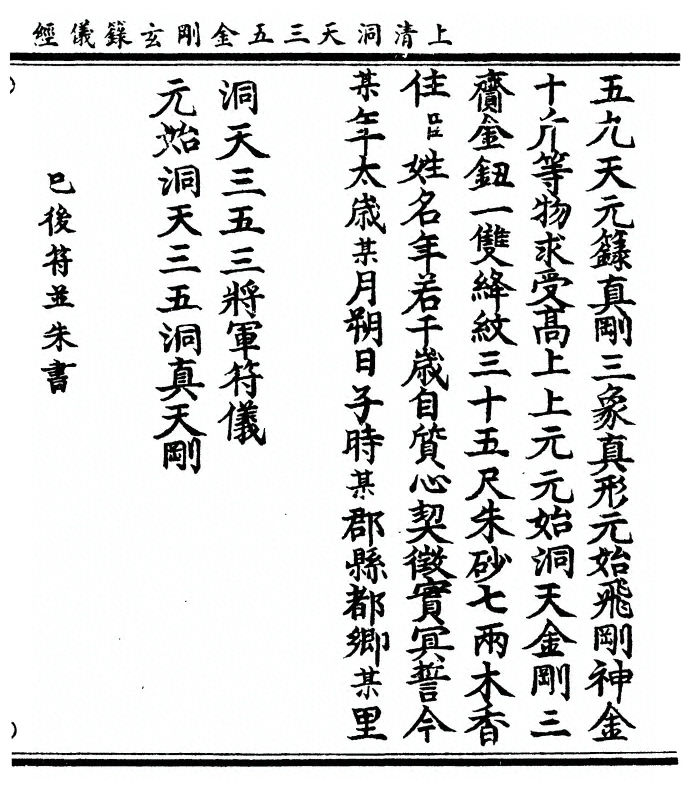 上清洞天三五金剛玄籙儀經
已後符並朱書
元始洞天三五洞真天剛
洞天三五三將軍符儀
某年太歲某月朔日子時某郡縣都鄉某里
住姓名年若干歲自質心契徵實冥誓今
齎金鈕一雙絳紋三十五尺朱砂七兩木香
十斤等物求受高上上元元始洞天金剛三
五九天元籙真剛三象真形元始飛剛神金